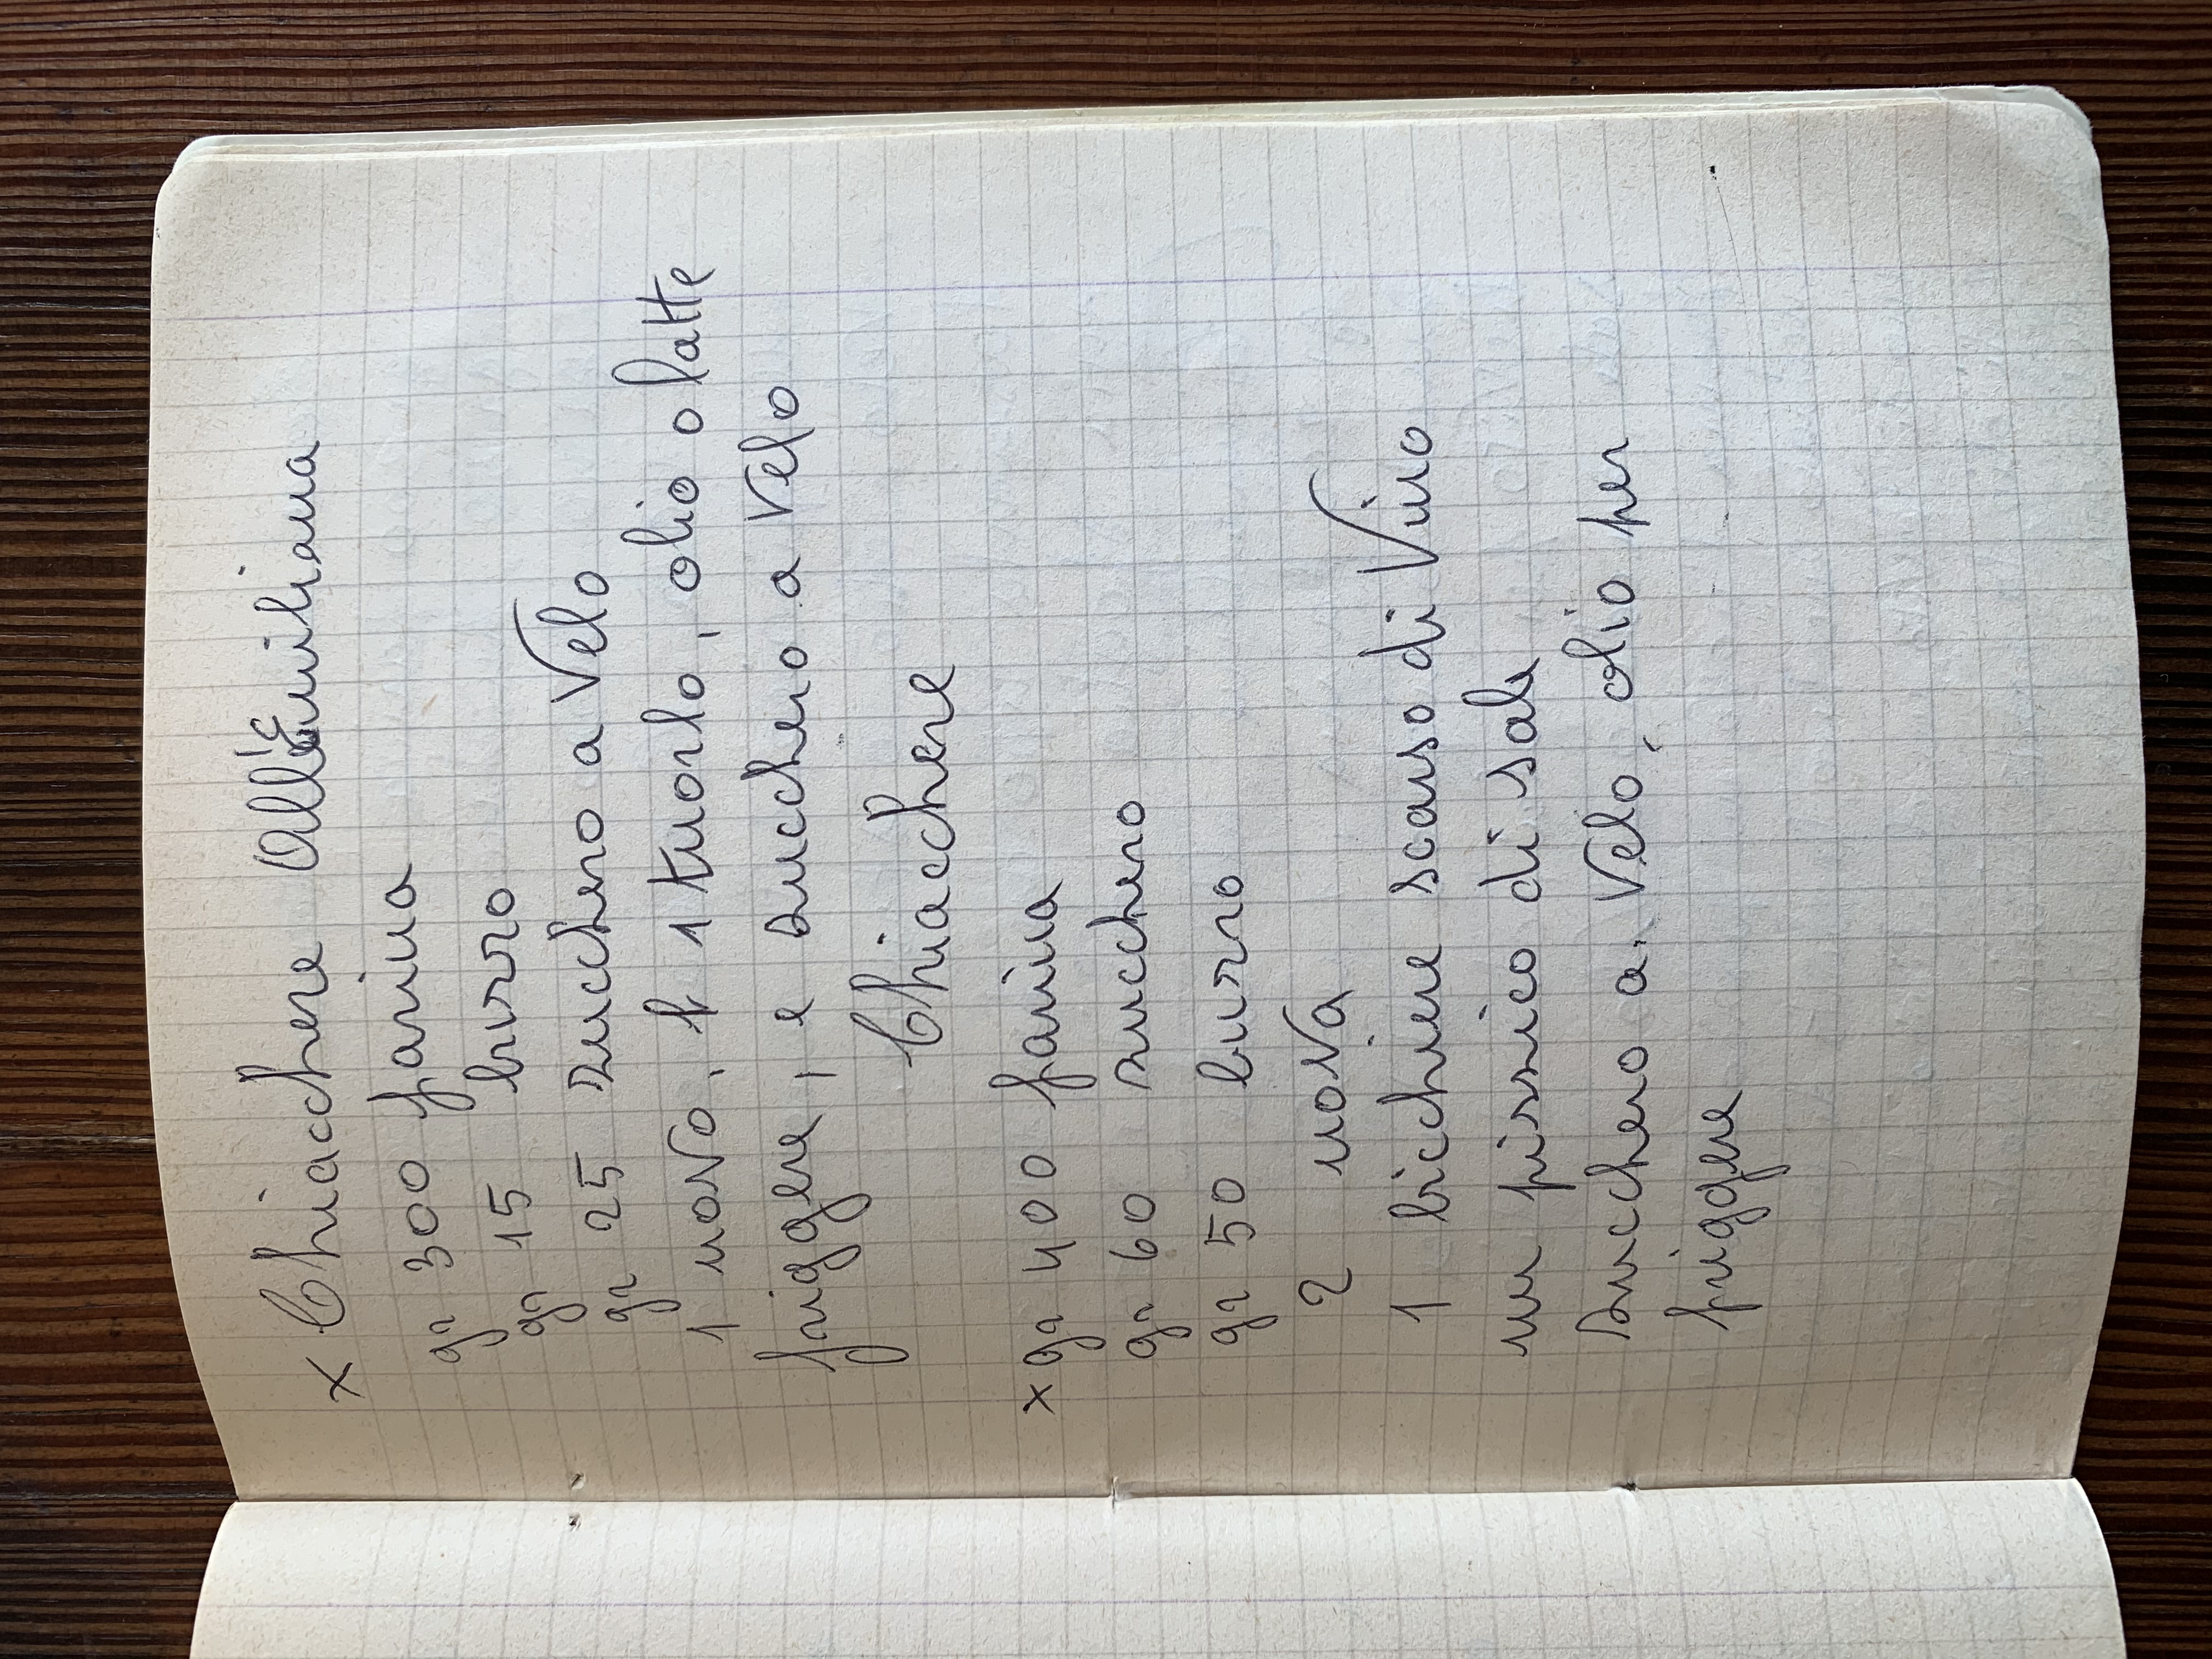 x Chiacchere All'Emiliana
gr 300 farina
gr 15 burro
gr 25 zucchero a Velo
1 uovo, e 1 tuorlo, olio o latte
friggere, e zucchero a Velo
Chiacchere
x gr 400 farina
gr 60 zucchero
gr 50 burro
2 uova
1 bicchiere scarso di Vino
un pizzico di sale
zucchero a. Velo, olio per
friggere